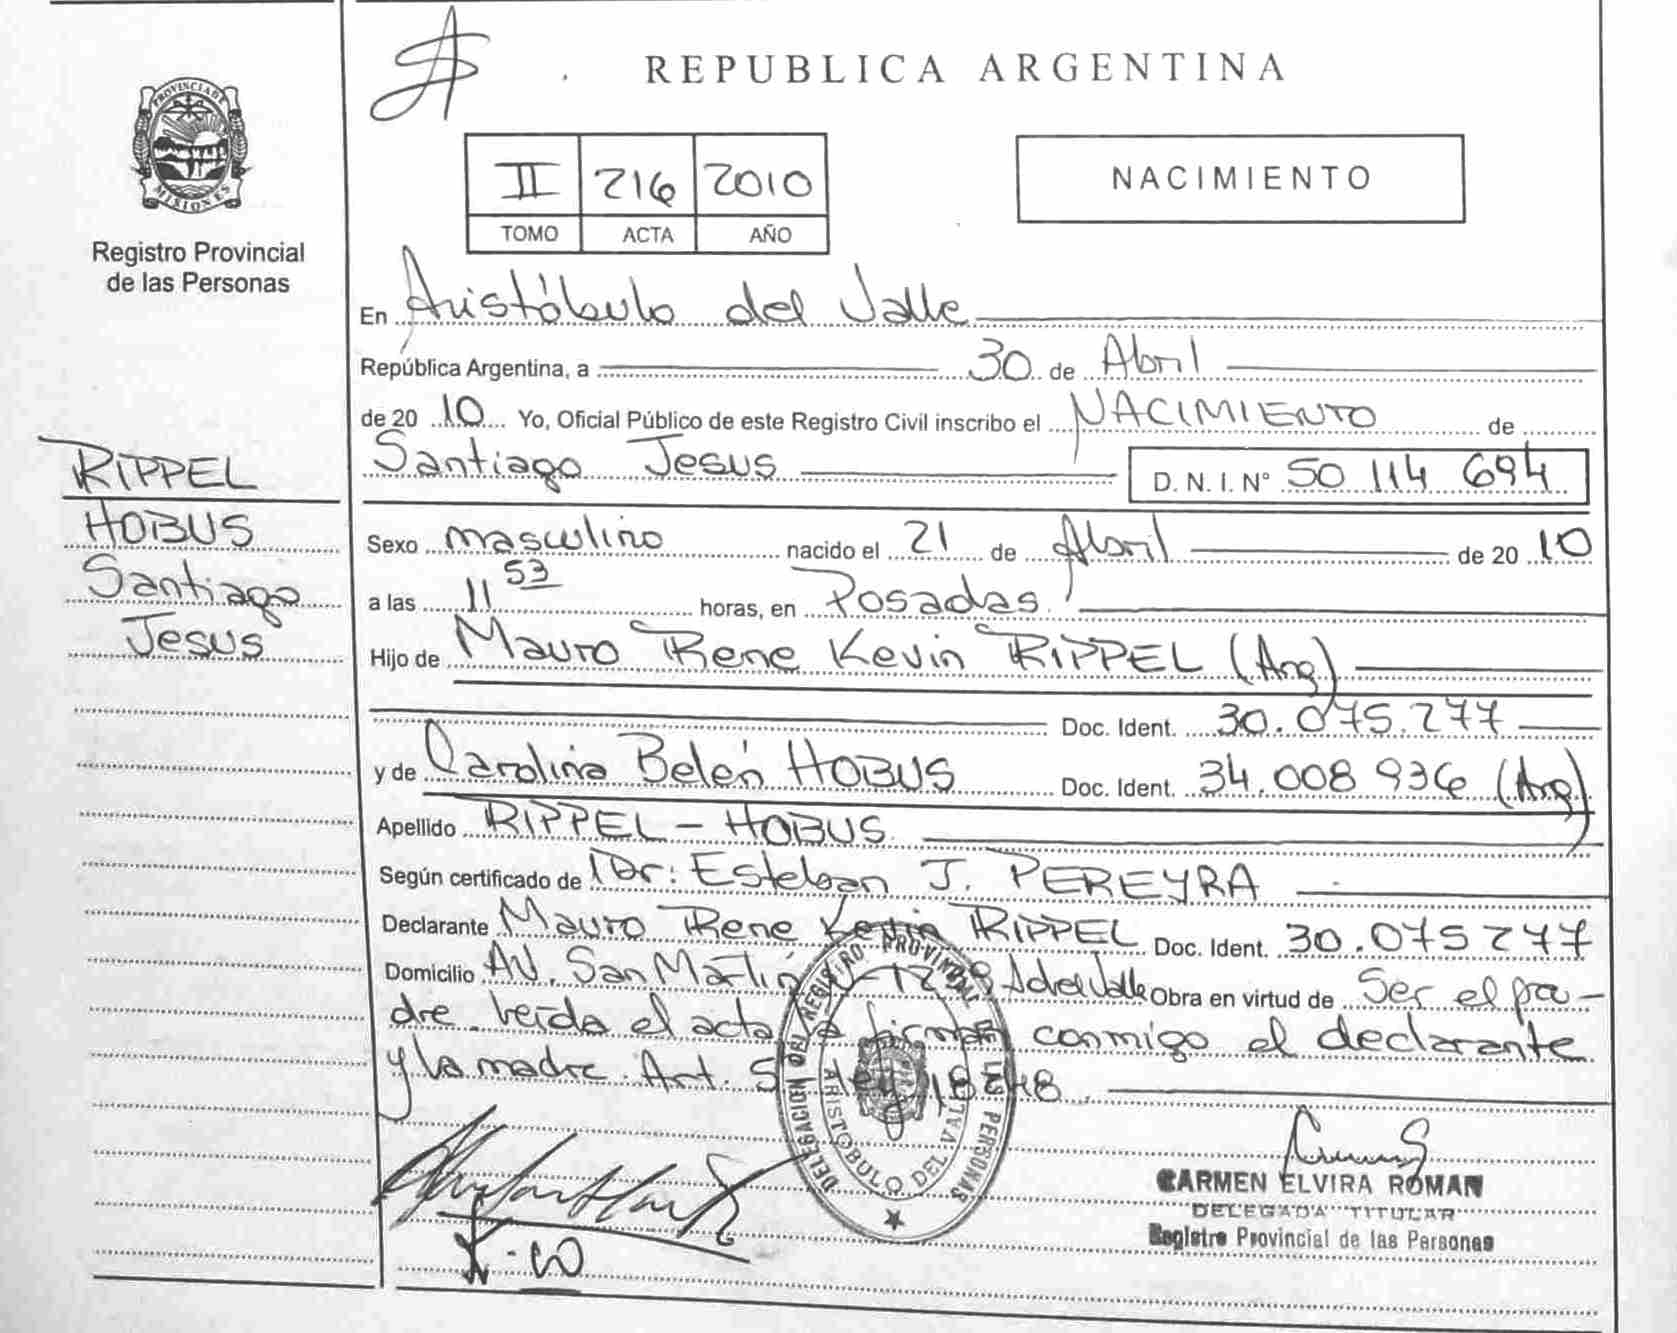 REPUBLICA ARGENTINA
PROVINCIA DE
MISIONES
Registro Provincial
de las Personas
II 216 2010
TOMO ACTA AÑO
NACIMIENTO
En Aristóbulo del Valle
República Argentina, a 30 de Abril
de 20 10 Yo, Oficial Público de este Registro Civil inscribo el NACIMIENTO de
Santiago Jesus D. N. I. N° 50 114 694
RIPPEL
HOBUS
Santiago
Jesus
Sexo masculino nacido el 21 de Abril de 20 10
a las 11 53 horas, en Posadas
Hijo de Mauro Rene Kevin RIPPEL (Arg)
Doc. Ident. 30.075.277
y de Carolina Belén HOBUS Doc. Ident. 34.008 936 (Arg)
Apellido RIPPEL - HOBUS
Según certificado de Dr: Esteban J. PEREYRA
Declarante Mauro Rene Kevin RIPPEL Doc. Ident. 30.075 277
Domicilio AV. San Martín A del Valle Obra en virtud de Ser el pa-
dre. leída el acta la firman conmigo el declarante
y la madre. Art. 5 ley 18248.
DELEGACION DEL REGISTRO PROVINCIAL DE LAS PERSONAS
ARISTOBULO DEL VALLE
CARMEN ELVIRA ROMAN
DELEGADA TITULAR
Registro Provincial de las Personas